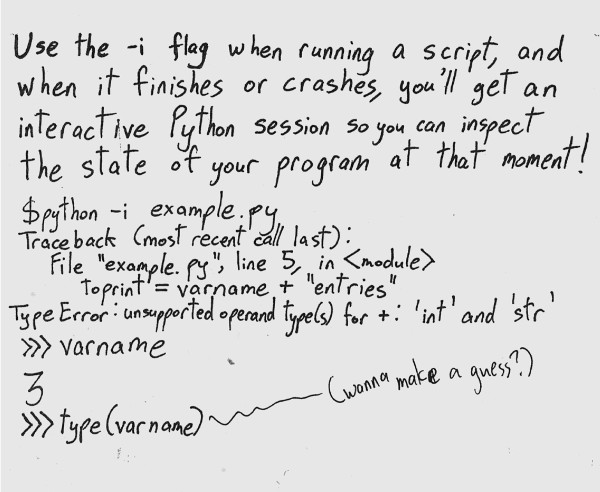 Use the -i flag when running a script, and
when it finishes or crashes, you'll get an
interactive Python session so you can inspect
the state of your program at that moment!
$python -i example.py
Traceback (most recent call last):
File "example.py", line 5, in <module>
toprint = varname + "entries"
TypeError: unsupported operand type(s) for +: 'int' and 'str'
>>> varname
3
>>> type(varname)
(wanna make a guess?)